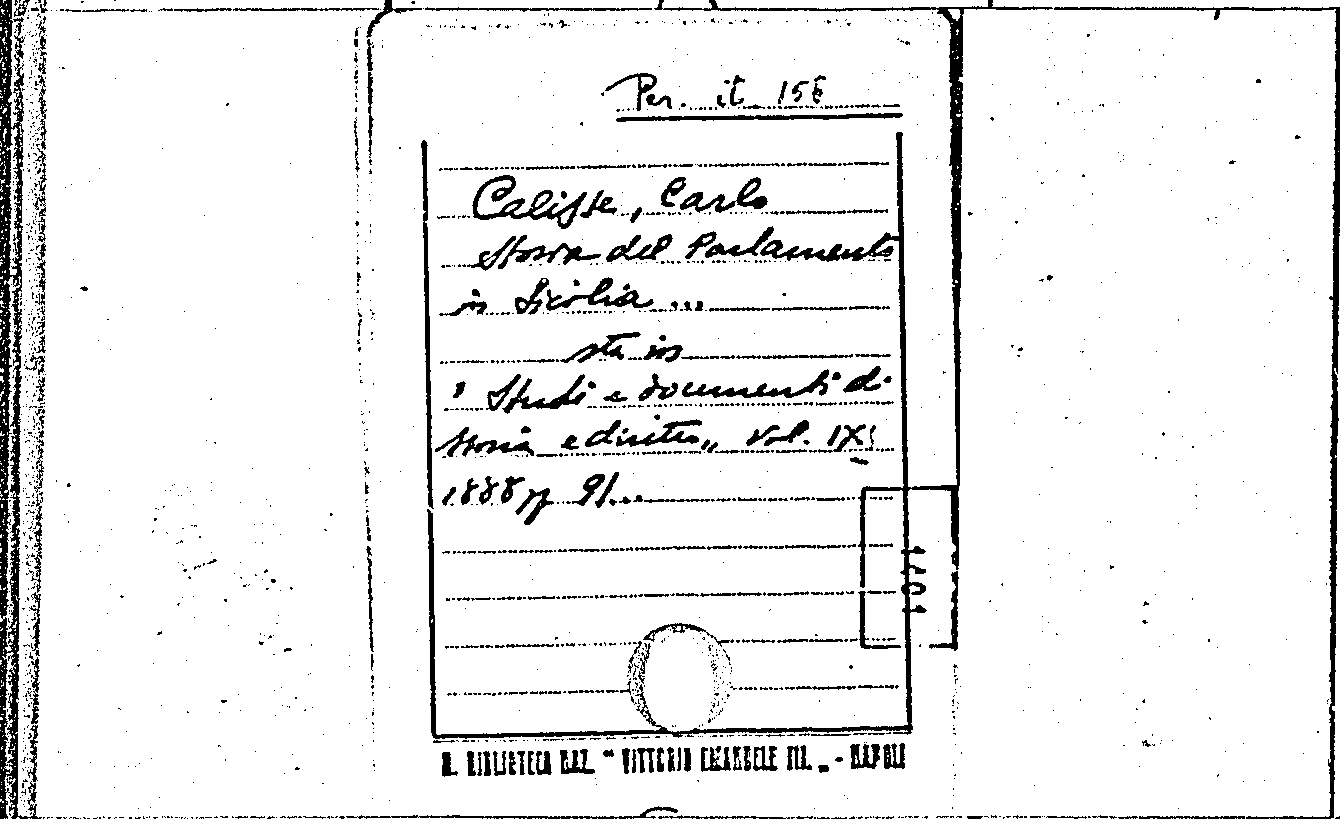 Per. it. 156
Calisse, Carlo
Storia del Parlamento
in Sicilia ...
sta in
" Studi e documenti di
storia e diritto „ Vol. IX
1888 pp 91...
R. BIBLIOTECA NAZ. “ VITTORIO EMANUELE III. „ - NAPOLI